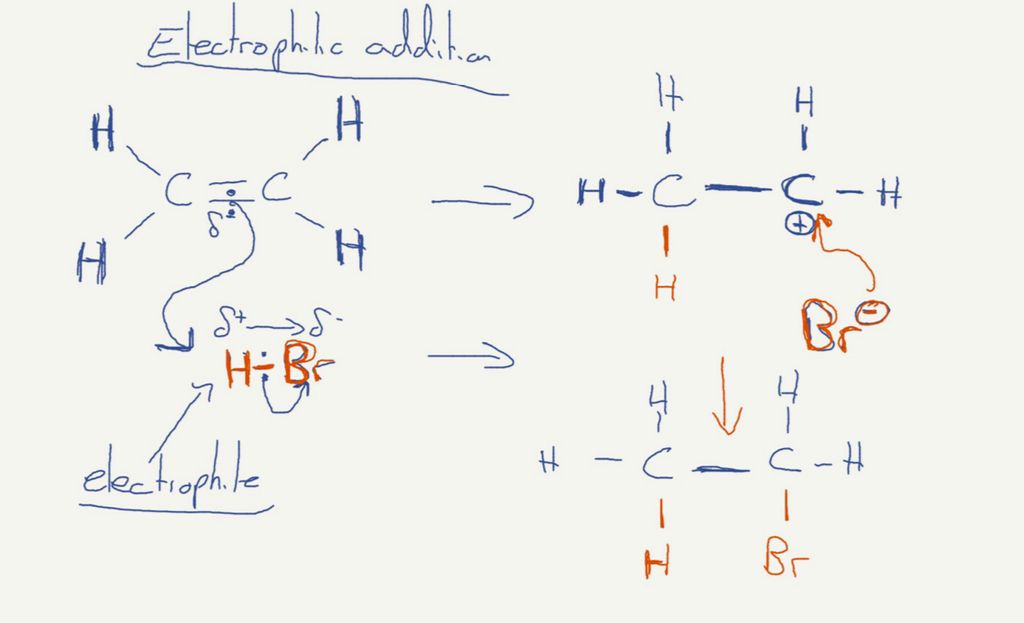 Electrophilic addition
H H
C = C
δ-
H H
δ+ → δ-
H - Br
electrophile
H H
H - C - C - H
+
H
Br -
H H
H - C - C - H
H Br